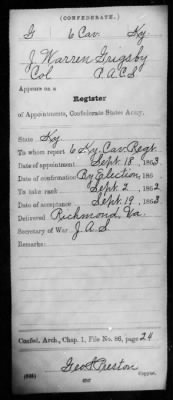 (CONFEDERATE.)
G 6 Cav. Ky
J Warren Grigsby
Col P.A.C.S
Appears on a
Register
of Appointments, Confederate States Army.
State Ky
To whom report 6 Ky. Cav. Regt.
Date of appointment Sept. 18, 1863
Date of confirmation By Election, 186 .
To take rank Sept. 2, 1862
Date of acceptance Sept. 19, 1863
Delivered Richmond, Va.
Secretary of War J.A.S.
Remarks:
Confed. Arch., Chap. 1, File No. 86, page 24
Geo H Preston
(635) Copyist.